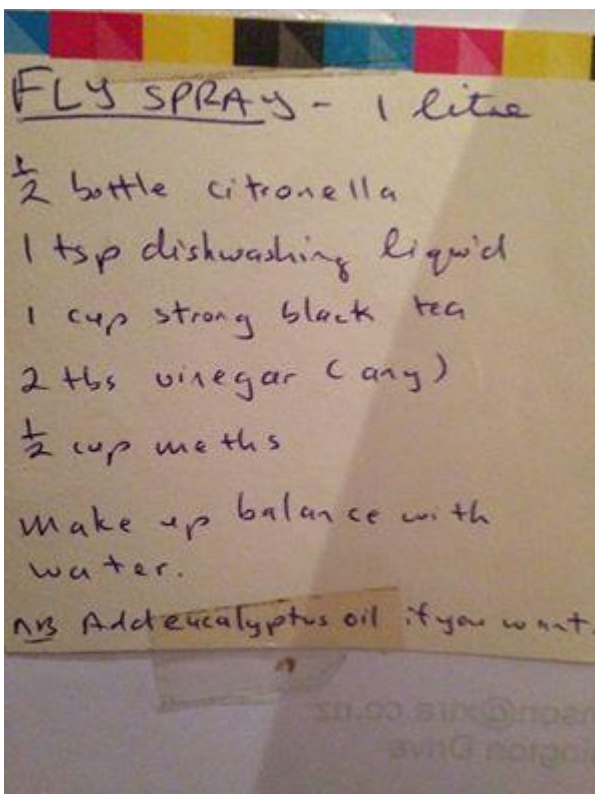 FLY SPRAY - 1 litre
½ bottle citronella
1 tsp dishwashing liquid
1 cup strong black tea
2 tbs vinegar (any)
½ cup meths
make up balance with
water.
NB Add eucalyptus oil if you want.